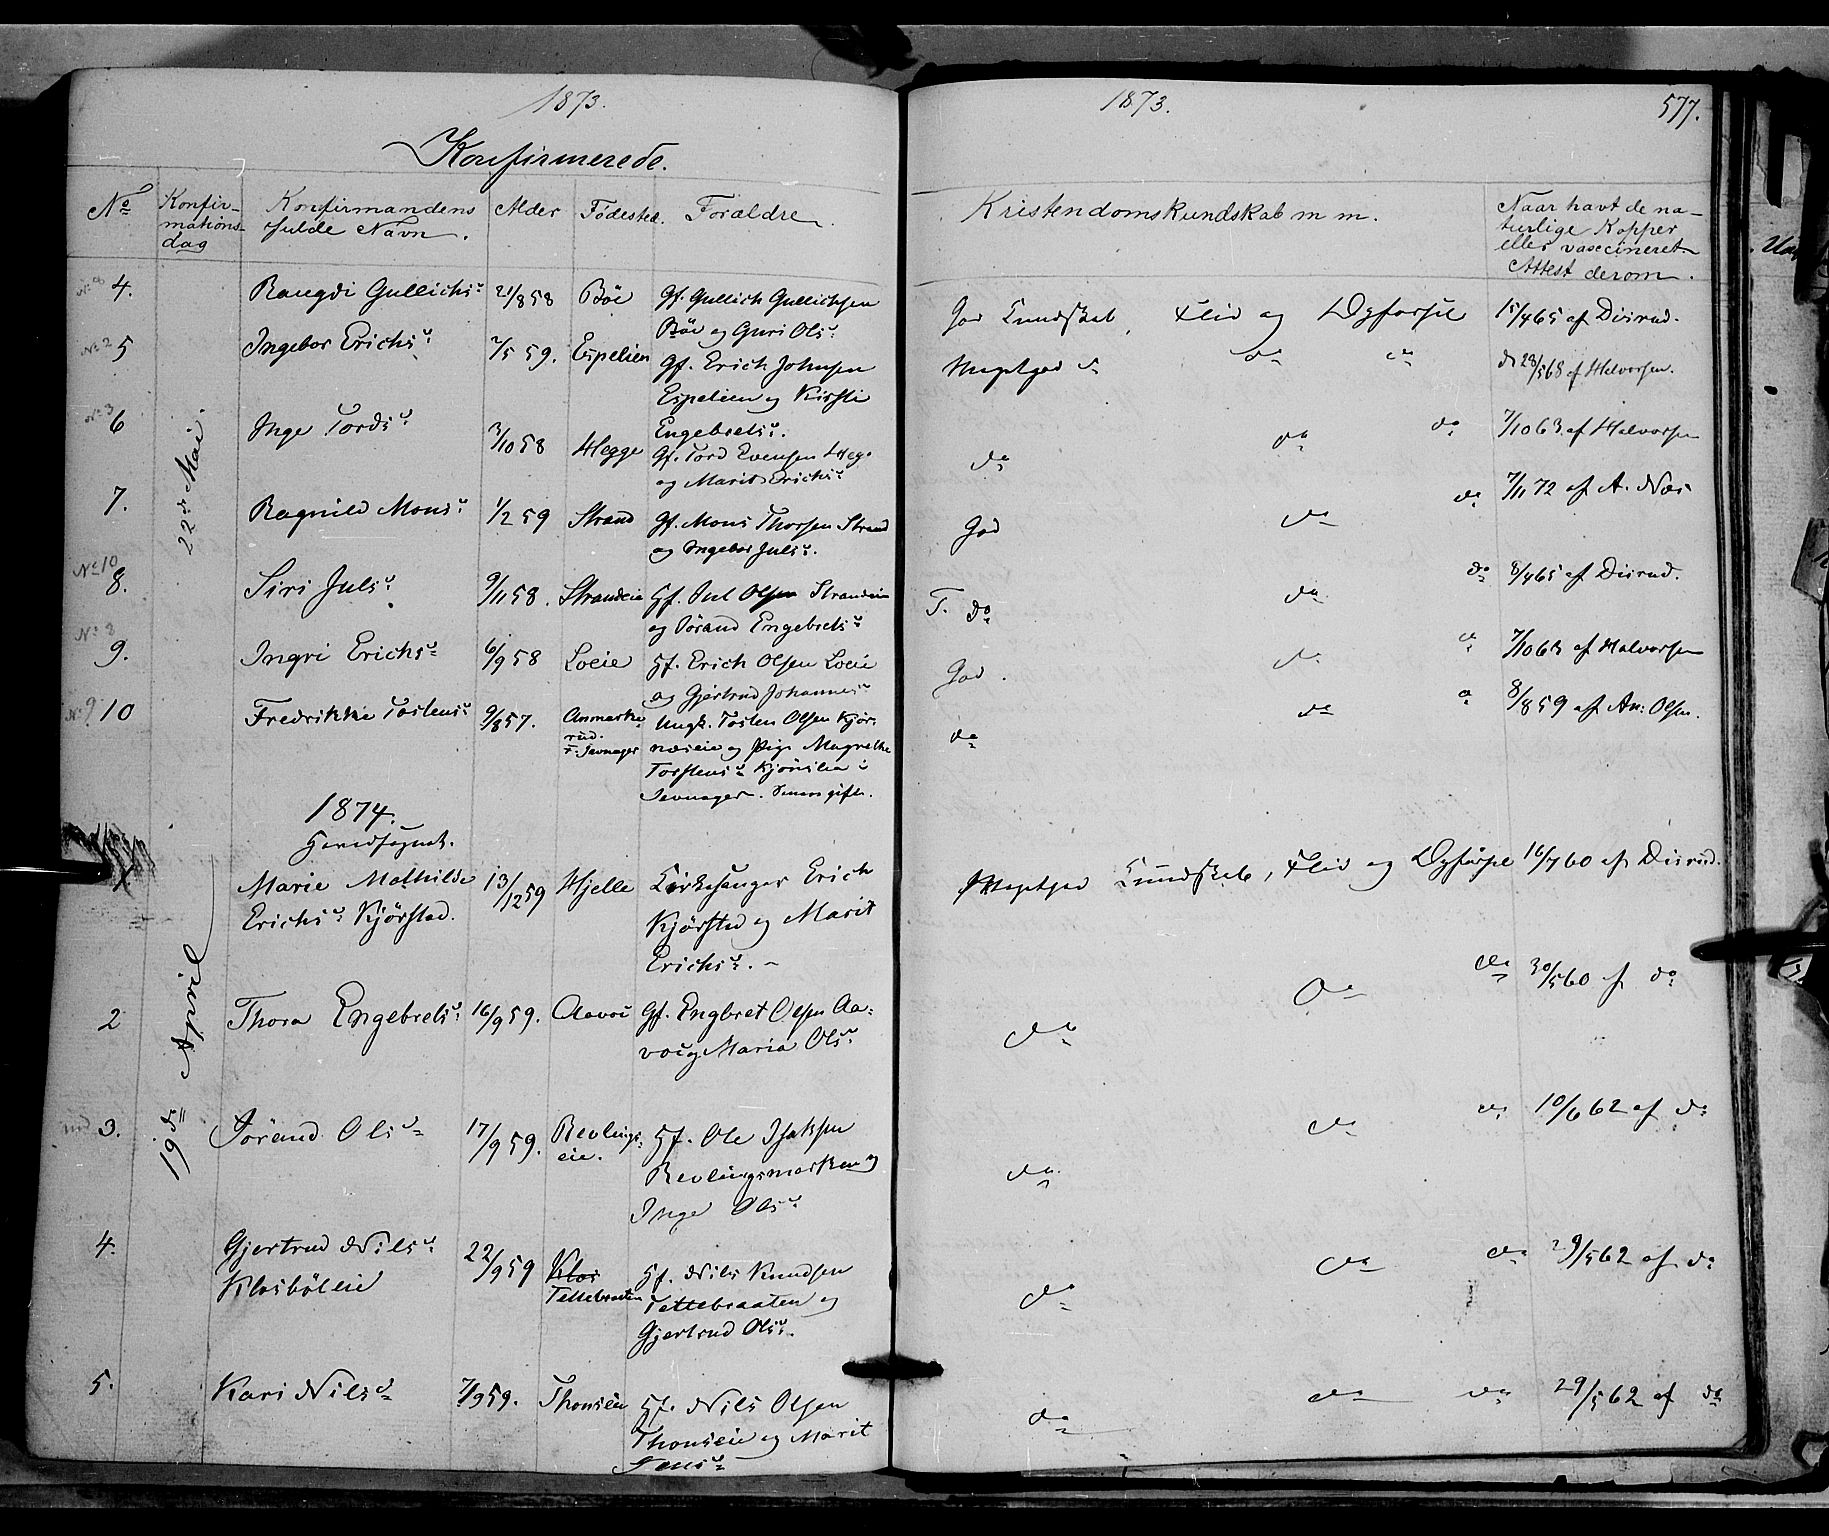 1873.
Konfirmerede.
No Konfirmationsdag Konfirmandens fulde Navn. Alder Fødested. Forældre
22de Mai
No 8 4. Rangdi Gullichsd 21/8 58 Bøe Gf. Gullich Gullichsen
Bøe og Guri Olsd.
No 2 5 Ingebor Erichsd 2/5 59. Espelien Gf. Erich Johnsen
Espelien og Kirsti
Engebretsd.
No 3 6 Inge Tordsd 3/10 58 Hegge Gf. Tord Evensen Heg.
og Marit Erichsd
7. Ragnild Monsd 1/2 59 Strand Gf. Mons Thorsen Strand
og Ingebor Julsd.
No 10 8. Siri Julsd 9/11 58. Strandeie Gf. Jul Olsen Strandeie
og Jørand Engebretsd
No 8 9. Ingri Erichsd 6/9 58 Loeie Gf. Erich Olsen Loeie
og Gjertrud Johannesd
No 9 10 Fredrikke Tostensd 9/8 57. Anmarkrud. i Jevnager Ungk. Tosten Olsen Kjør-
næseie og Pige Magnethe
Torstensd Kjønslia i
Jevnager. Senere gifte.
1874.
Hovedsognet.
19de April
Marie Mathilde 13/12 59 Hjelle Kirkesanger Erich
Erichsd Kjørstad. Kjørstad og Marit
Erichsd. -
2 Thora Engebretsd 16/9 59. Aavoi Gf. Engbret Olsen Aa-
voi og Maria Olsd
3. Jørand Olsd 17/9 59. Revlings- Gf. Ole Isaksen
eie. Revlingsmarken og
Inge Olsd
4. Gjertrud Nilsd 22/9 59 Klos Gf. Nils Knudsen
Klosbøleie Tettebraaten Tettebraaten og
Gjertrud Olsd.
5. Kari Nilsd 7/9 59. Thonseie Gf. Nils Olsen
Thonseie og Marit
1873. 577.
Kristendomskundskab m m. Naar havt de na-
turlige Kopper
eller vaccineret
Attest derom.
God Kundskab, Flid og Opførsel 15/4 65 af Disrud.
Megetgod do do do do 28/5 68 af Halvorsen.
do do do 7/10 63. af Halvorsen
God do do 7/11 72 af A. Næs
T. do do do 8/4 65 af Disrud.
God. do do 7/10 63 af Halvorsen
do do do 8/8 59 af An: Olsen.
Megetgod Kundskab, Flid og Opførsel 16/7 60 af Disrud.
do do do 30/5 60 af do
do do do 10/6 62 af do
do do do 29/5 62 af do
do do do 29/5 62 af do